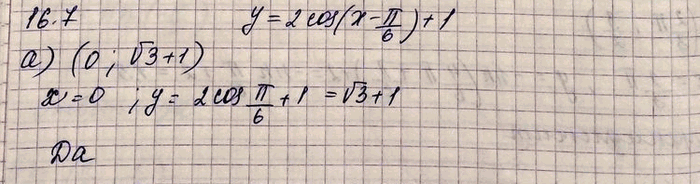 16.7 y = 2 cos(x - π/6) + 1
а) (0 ; √3+1)
x = 0 ; y = 2 cos π/6 + 1 = √3 + 1
Да